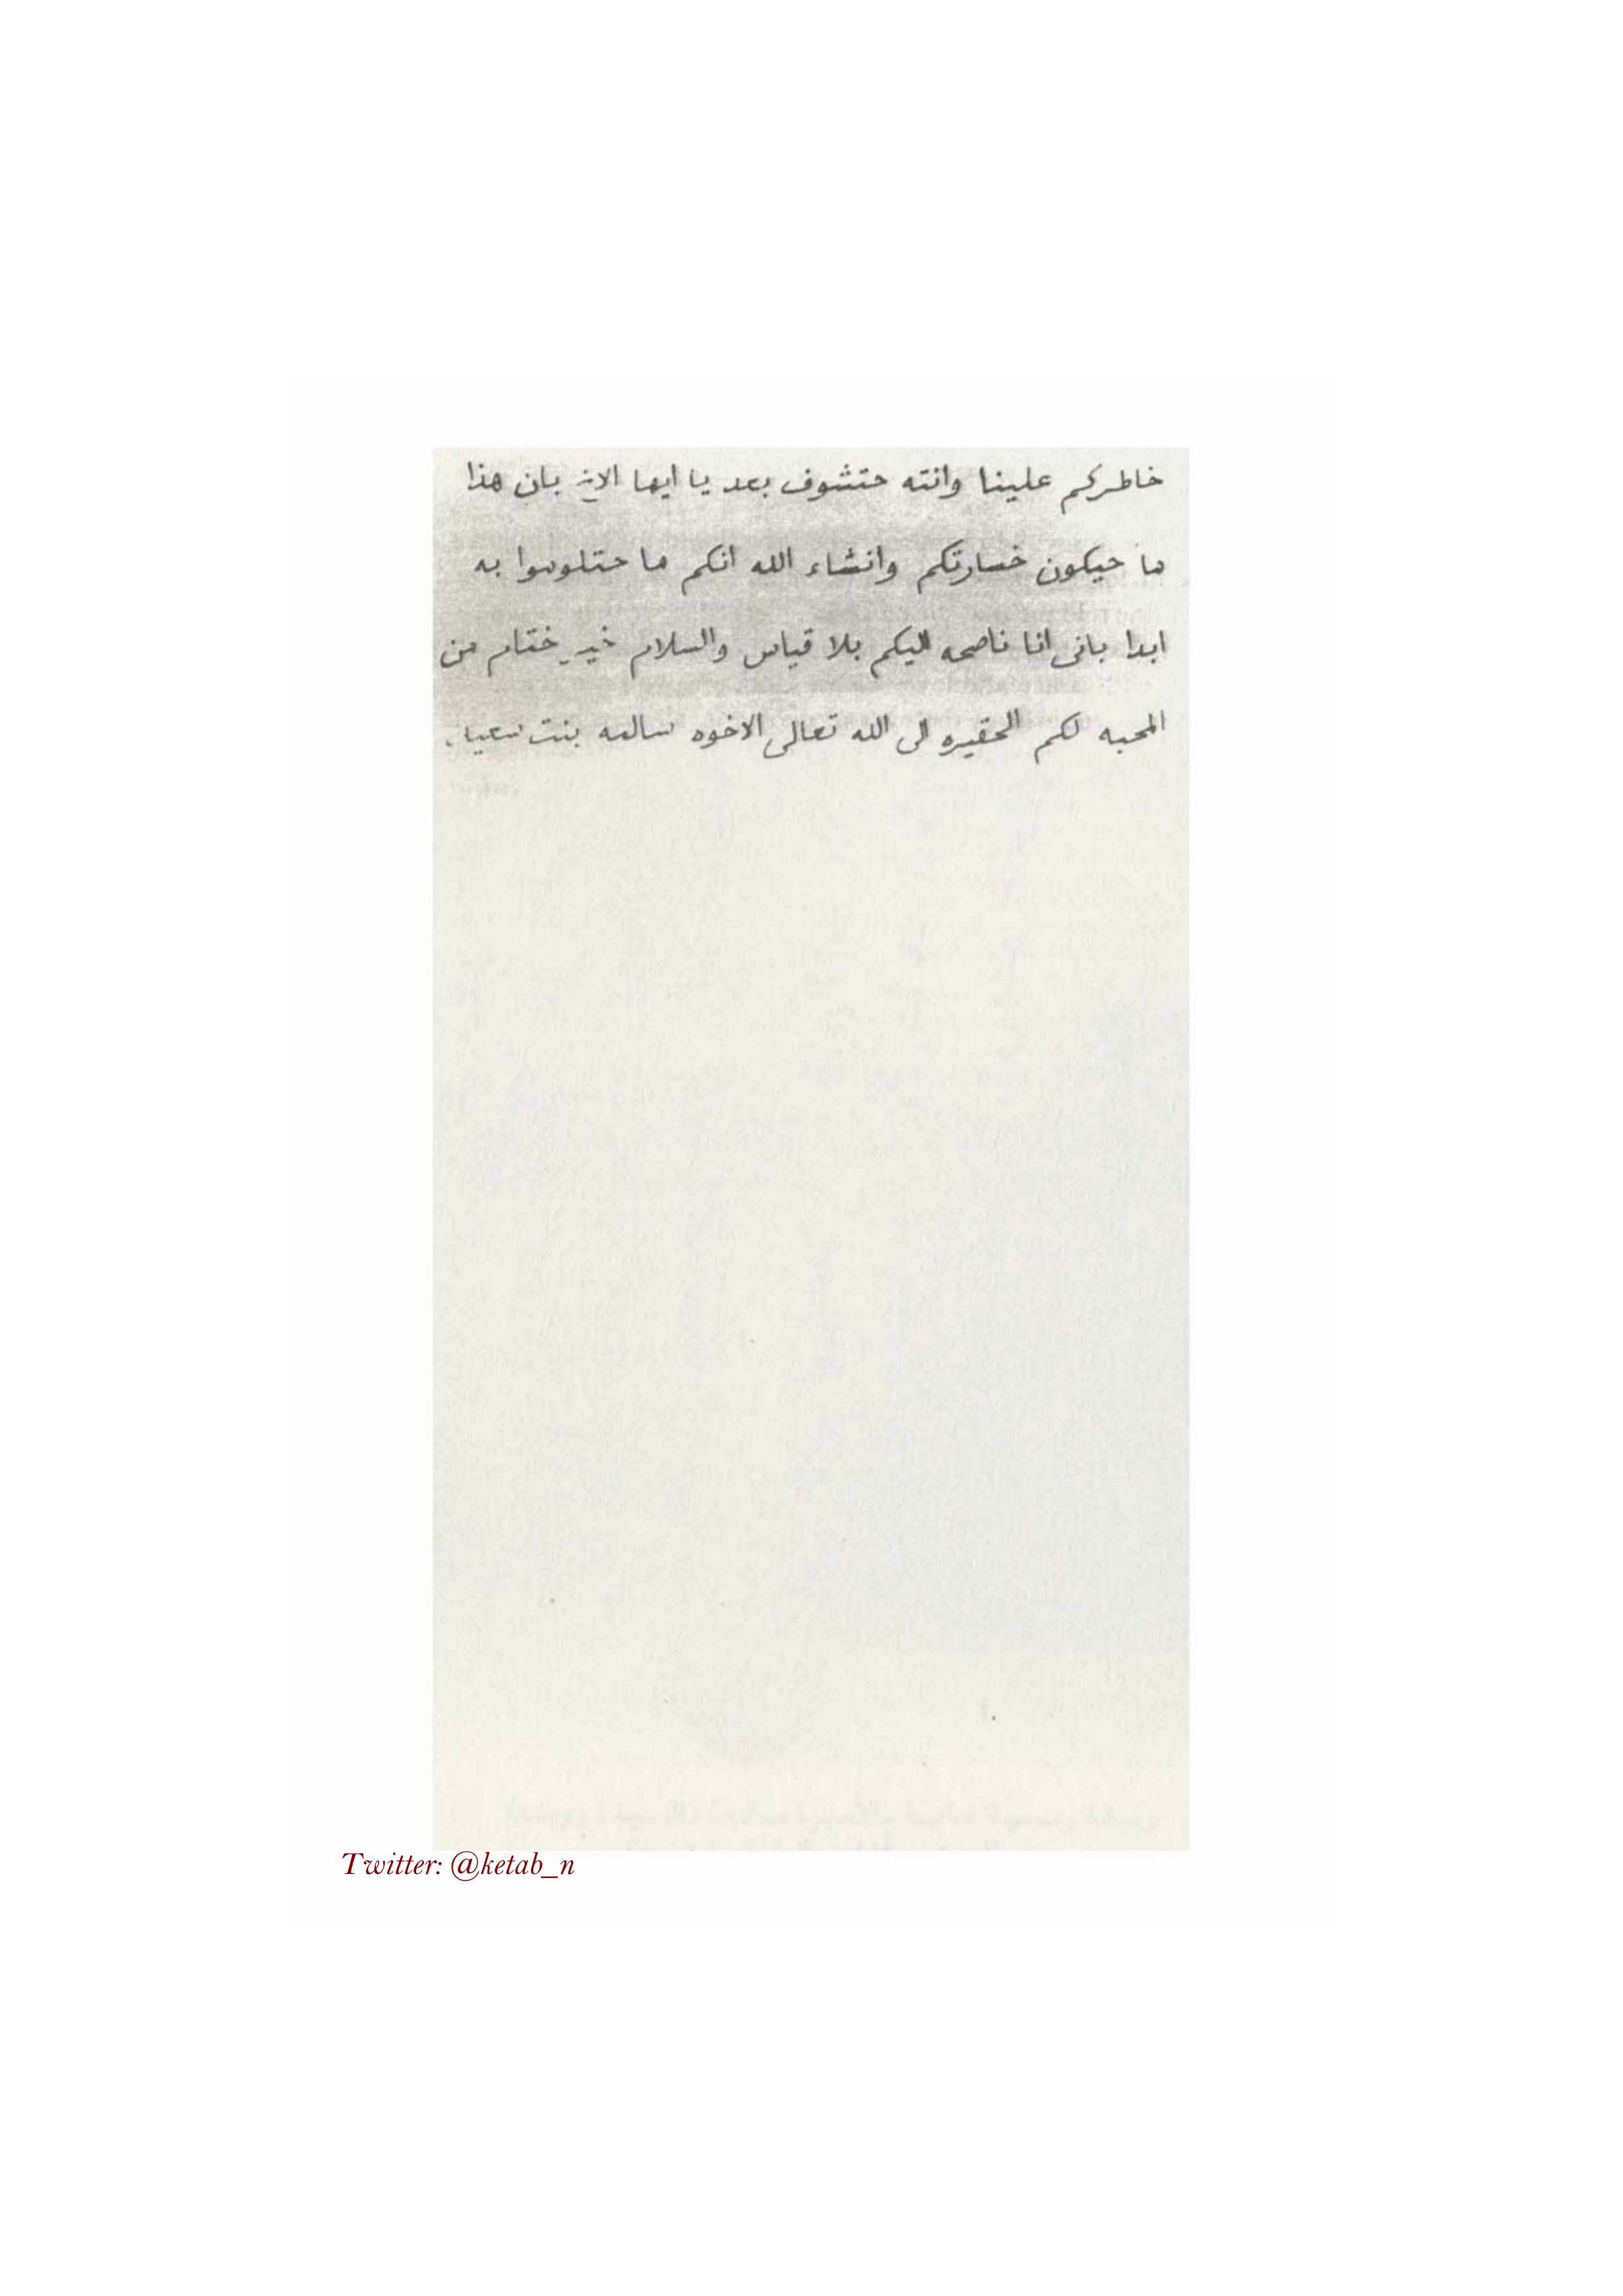 خاطركم علينا وانته حتشوف بعد يا ايها الاخ بان هذا
ما حيكون خسارتكم وانشاء الله انكم ما حتلوموا به
ابدا بانى انا ناصحه اليكم بلا قياس والسلام خير ختام من
المحبه لكم الحقيره الى الله تعالى الاخوه سالمه بنت سعيد
Twitter: @ketab_n